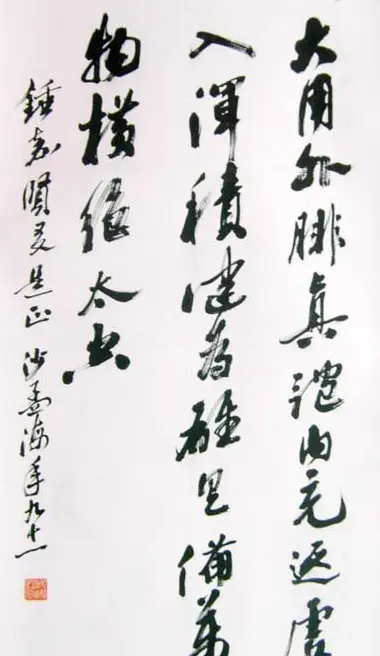 大用外腓真體内充返虛
入渾積健為雄具備萬
物橫絕太空
鍾賢友是正 沙孟海年九十一